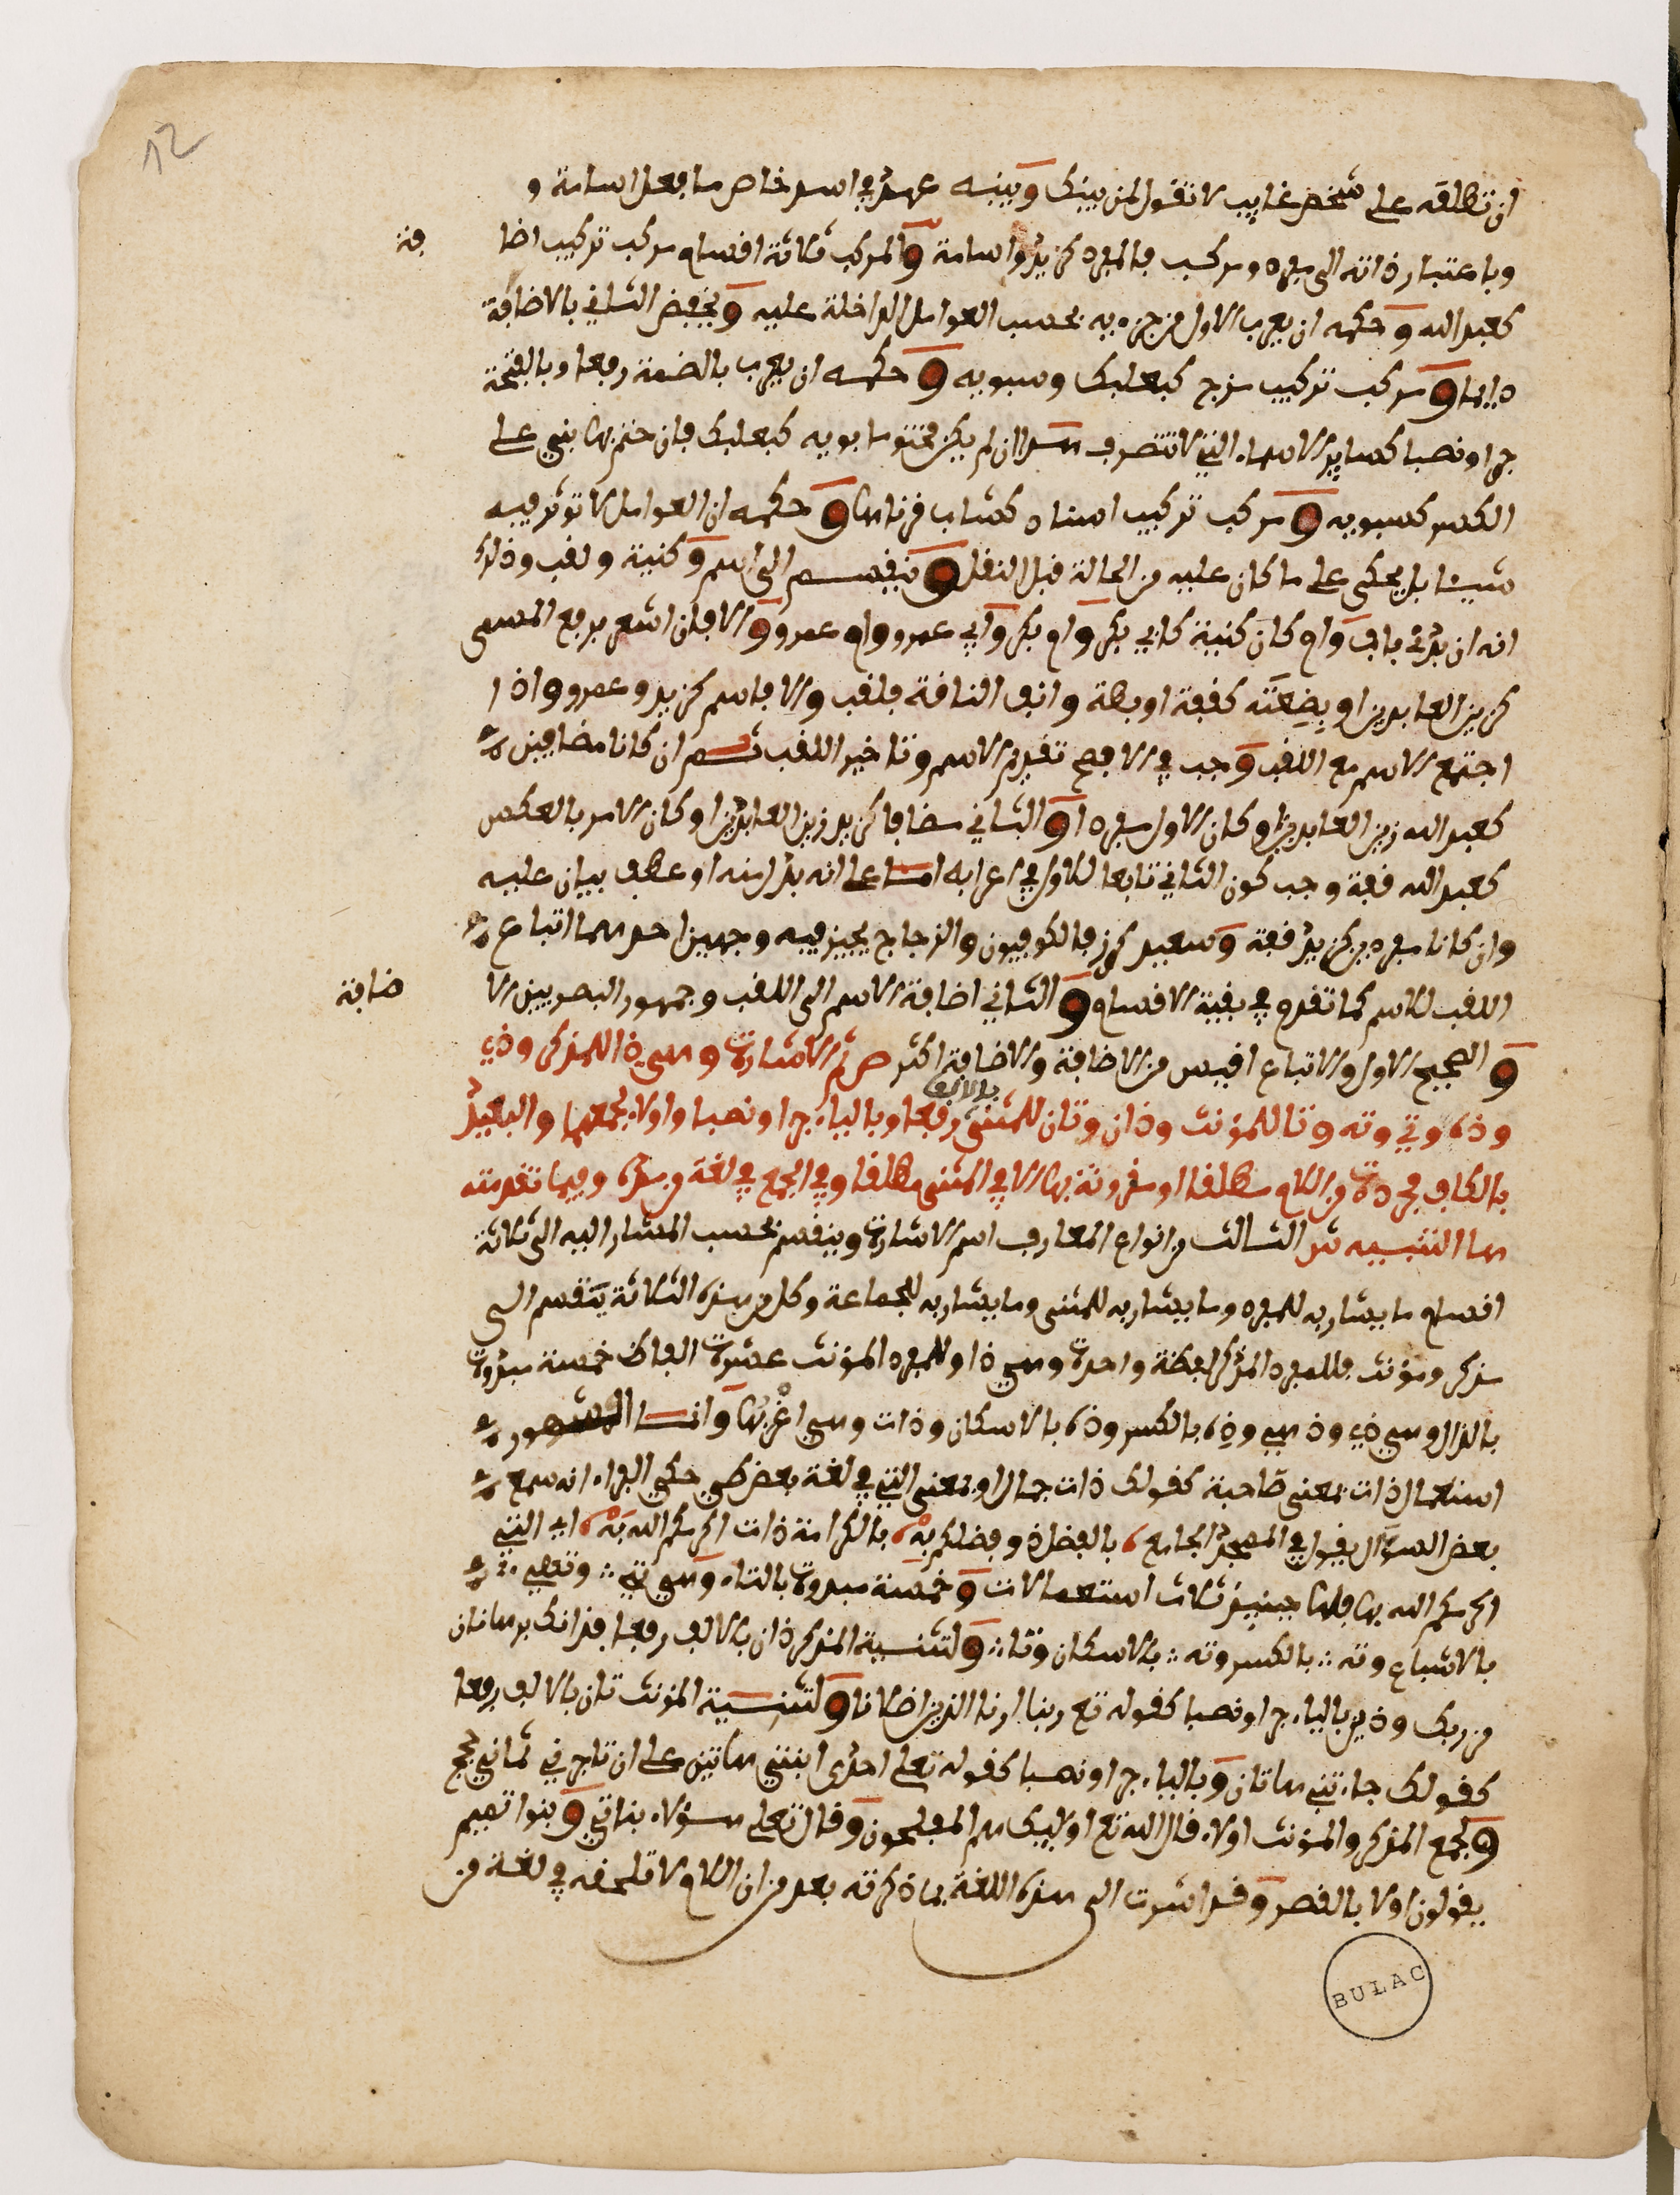 12
ان تطلقه على شخص غايب لا تقول لمن بينك وبينه عهد في اسد خاص ما فعل اسامة و
وباعتبار ذاته الى مفرد ومركب فالمفرد كزيد واسامة والمركب ثلاثة اقسام مركب تركيب اضا فة
كعبد الله وحكمه ان يعرب الاول من جزءيه بحسب العوامل الداخلة عليه ويخفض الثاني بالاضافة
دايما ومركب تركيب مزج كبعلبك وسبويه وحكمه ان يعرب بالضمة رفعا وبالفتحة
جرا ونصبا كساير الاسماء التي لا تنصرف هذا ان لم يكن مختوما بويه كبعلبك فان ختم بها بني على
الكسر كسبويه ومركب تركيب اسناد كشاب قرناها وحكمه ان العوامل لا توثر فيه
شيئا بل يحكى على ما كان عليه من الحالة قبل النقل وينقسم الى اسم وكنية ولقب وذلك
انه ان بدئ باب وام كان كنية كابي بكر وام بكر وابي عمرو وام عمرو والا فان اشعر برفع المسمى
كزين العابدين او بِضِعَتَه كقفة او بطة وانف الناقة فلقب والا فاسم كزيد وعمرو واذا
اجتمع الاسم مع اللقب وجب في الافصح تقديم الاسم وتاخير اللقب ثم ان كانا مضافين
كعبد الله زين العابدين او كان الاول مفردا والثاني مضافا كزيد زين العابدين او كان الامر بالعكس
كعبد الله قفة وجب كون الثاني تابعا للاول في اعرابه اما على انه بدل منه او عطف بيان عليه
وان كانا مفردين كزيد قفة وسعيد كرز فالكوفيون والزجاج يجيز فيه وجهين احدهما اتباع
اللقب للاسم كما تقدم في بقية الاقسام والثاني اضافة الاسم الى اللقب وجمهور البصريين الا ضافة
والصحيح الاول والاتباع اقيس من الاضافة والاضافة اكثر ص ثم الاشارة وهي ذا للمذكر وذي
وذه وتي وته وتا للمؤنث وذان وتان للمثنى بالالف رفعا وبالياء جرا ونصبا واولاء لجمعهما والبعيد
بالكاف مجردة من اللام مطلقا او مقرونة بها الا في المثنى مطلقا وفي الجمع في لغة من مده وفيما تقدمته
ها التنبيه ش الثالث من انواع المعارف اسم الاشارة وينقسم بحسب المشار اليه الى ثلاثة
اقسام ما يشار به للمفرد وما يشار به للمثنى وما يشار به للجماعة وكل من هذه الثلاثة ينقسم الى
مذكر ومؤنث فللمفرد المذكر لفظة واحدة وهي ذا وللمفرد المؤنث عشرة الفاظ خمسة مبدوة
بالذال وهي ذي وذهي وذه بالكسر وذه بالاسكان وذات وهي اغربها وانما المشهور
استعمال ذات بمعنى صاحبة كقولك ذات جمال او بمعنى التي في لغة بعض طي حكى الفراء انه سمع
بعض السؤال يقول في المسجد الجامع بالفضل ذو فضلكم به، بالكرامة ذات اكرمكم الله بَهْ، اي التي
اكرمكم الله بها فلها حينئذ ثلاث استعمالات وخمسة مبدوة بالتاء وهي تي وتهي
بالاشباع وته بالكسر وته بالاسكان وتا ولتثنية المذكر ذان بالالف رفعا فذانك برهانان
من ربك وذين بالياء جرا ونصبا كقوله تع ربنا ارنا اللذين اضلانا ولتثنية المؤنث تان بالالف رفعا
كقولك جاءتني هاتان وبالياء جرا ونصبا كقوله تعلى احدى ابنتي هاتين على ان تاجرني ثماني حجج
ولجمع المذكر والمؤنث اولاء قال الله تع اوليك هم المفلحون وقال تعلى هؤلاء بناتي وبنوا تميم
يقولون اولا بالقصر وقد اشرت الى هذه اللغة بما ذكرته بعد من ان اللام لا تلحقه في لغة من
BULAC